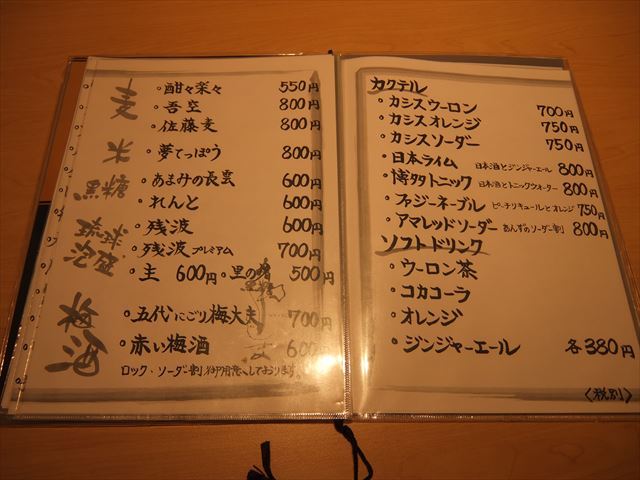 麦
・酣々楽々 550円
・吾空 800円
・佐藤麦 800円
米
・夢てっぽう 800円
黒糖
・あまみの長雲 600円
・れんと 600円
琉球泡盛
・残波 600円
・残波プレミアム 700円
・主 600円 ・里の曙 500円
黒糖
梅酒
・五代にごり梅大夫 700円
・赤い梅酒 600
ロック・ソーダー割り御用意しております。
カクテル
・カシスウーロン 700円
・カシスオレンジ 750円
・カシスソーダー 750円
・日本ライム 日本酒とジンジャーエール 800円
・博多トニック 日本酒とトニックウォーター 800円
・ファジーネーブル ピーチリキュールとオレンジ 750円
・アマレッドソーダー あんずのソーダー割 800円
ソフトドリンク
・ウーロン茶
・コカコーラ
・オレンジ
・ジンジャーエール 各380円
〈税別〉